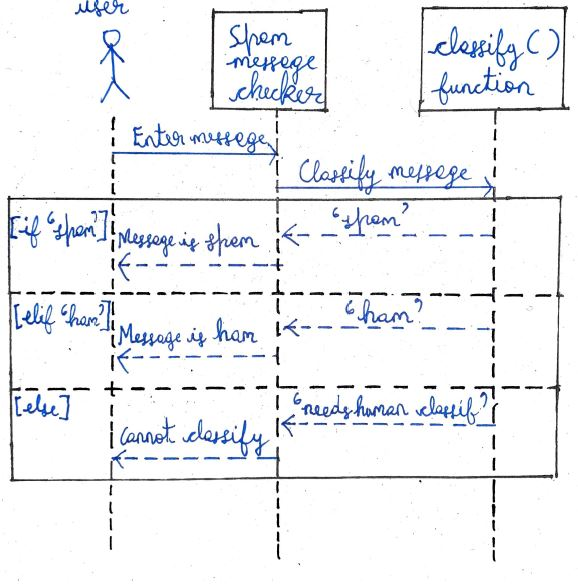 user
Spam
message
checker
classify()
function
Enter message
Classify message
[if 'spam']
'spam'
Message is spam
[elif 'ham']
'ham'
Message is ham
[else]
'needs human classif'
cannot classify